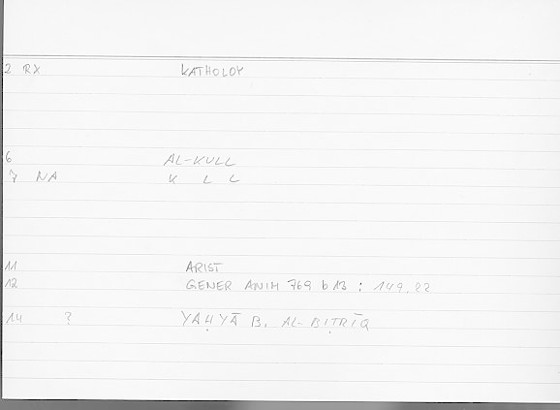 2 RX KATHOLOY
6 AL-KULL
7 NA K L L
11 ARIST
12 GENER ANIM 769 b 13 : 149,22
14 ? YAḤYĀ B. AL-BIṬRĪQ